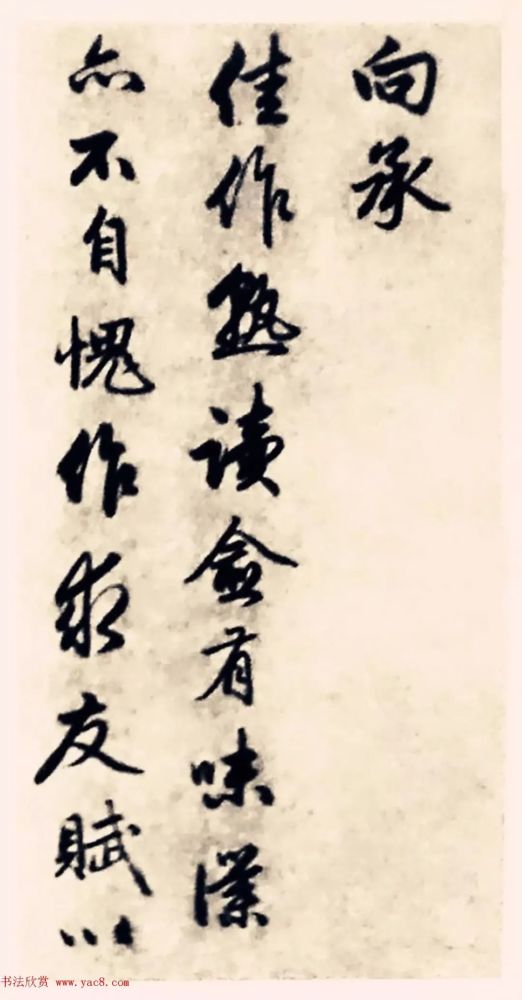 向承
佳作熟讀愈有味僕
亦不自愧作求友賦以
书法欣赏 www.yac8.com